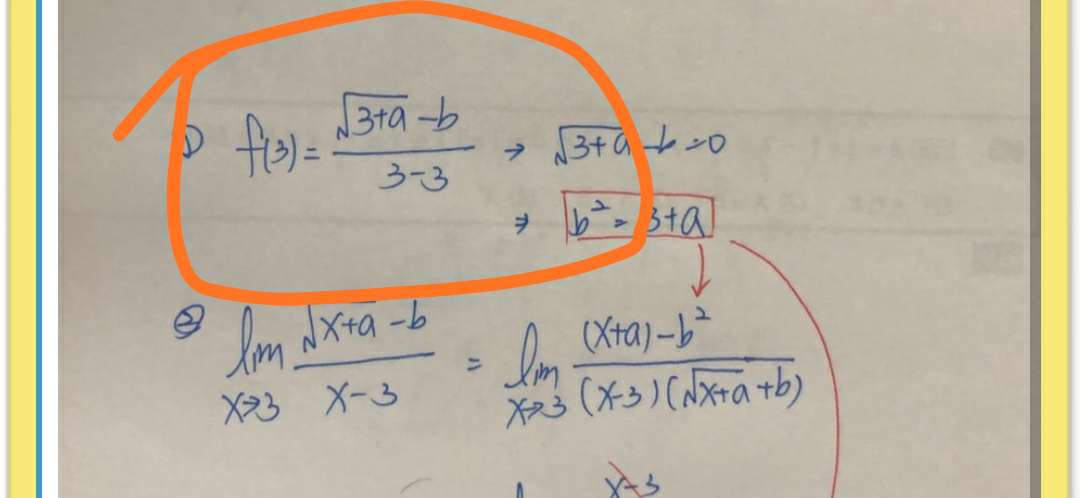 ① f(3) = (√(3+a) - b)/(3-3) → √(3+a) - b = 0
⇒ b² = 3+a
② lim x→3 (√(x+a) - b)/(x-3) = lim x→3 ((x+a) - b²)/((x-3)(√(x+a) + b))
x-3